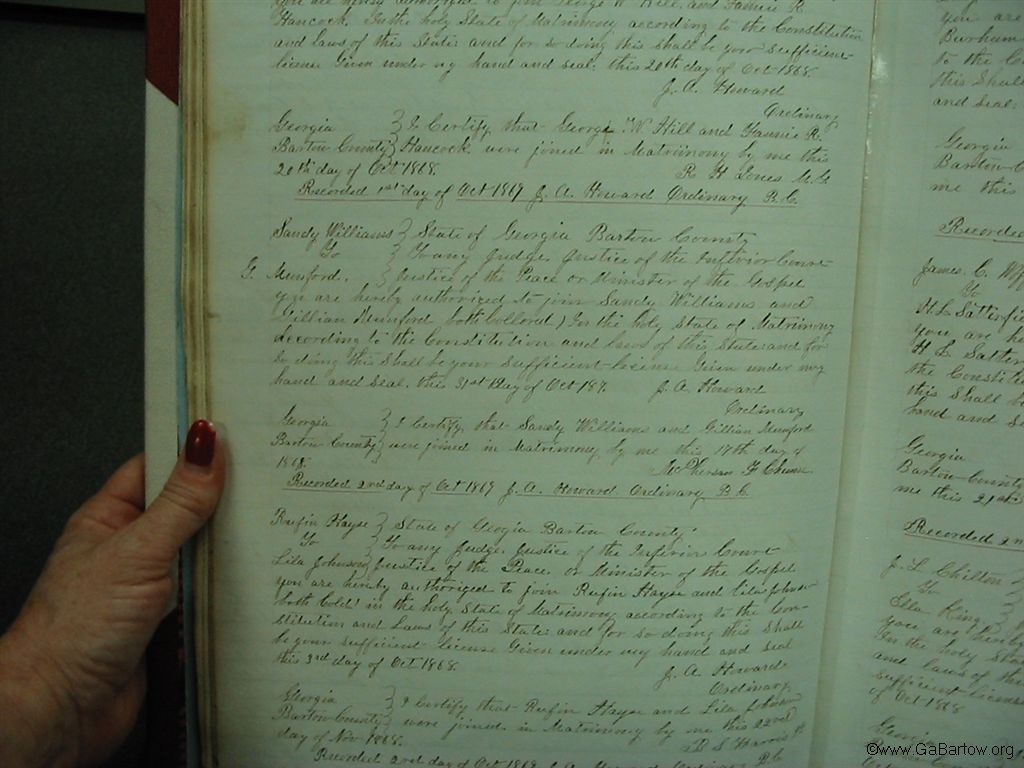 you are hereby authorized to join George W Hill and Fannie R.
Hancock. In the holy State of Matrimony according to the Constitution
and laws of this State and for so doing this shall be your sufficient
license Given under my hand and seal. this 20th day of Oct 1868.
J. A. Howard
Ordinary
Georgia } I Certify that George W Hill and Fannie R.
Bartow County } Hancock were joined in Matrimony by me this
20th day of Oct 1868. R. H Jones M. G.
Recorded 1st day of Oct 1869 J. A. Howard Ordinary B. C.
Sandy Williams } State of Georgia Bartow County
To } To any Judge, Justice of the Inferior Court
G Munford. } Justice of the Peace or Minister of the Gospel
you are hereby authorized to join Sandy Williams and
Gillian Munford both Collored) In the holy State of Matrimony
according to the Constitution and laws of this State and for
so doing this shall be your sufficient license Given under my
hand and seal. this 31st Day of Oct 187. J. A. Howard
Ordinary
Georgia } I Certify that Sandy Williams and Gillian Munford
Bartow County } were joined in Matrimony by me this 17th day of
1868. McPherson
Recorded 2nd day of Oct 1869 J. A. Howard. Ordinary B. C.
Rufin Hayse } State of Georgia Bartow County
To } To any Judge, Justice of the Inferior Court
Lila Johnson } Justice of the Peace or Minister of the Gospel
you are hereby authorized to join Rufin Hayse and Lila Johns-
both Cold' in the holy State of Matrimony according to the Con-
stitution and Laws of this State and for so doing this shall
be your sufficient license Given under my hand and seal
this 3rd day of Oct 1868. J. A. Howard
Ordinary
Georgia } I Certify that Rufin Hayse and Lila Johnson
Bartow County } were joined in Matrimony by me this 22nd
day of Nov 1868. Harris
Recorded 2nd day of Oct 1869 J. A. Howard Ordinary B.C.
you are
Burham
to the C
this shall
and seal:
Georgia
Bartow C
me this
Recorded
James. C.
To
H. L. Satterfi
you are he
H L Satter
the Constit
this shall b
hand and S
Georgia
Bartow County
me this 21st
Recorded 2n
J. L Chilton
To
Ella King
you are hereby
In the holy Sta
and laws of the
sufficient licens
of Oct 1868
Georgia
©www.GaBartow.org